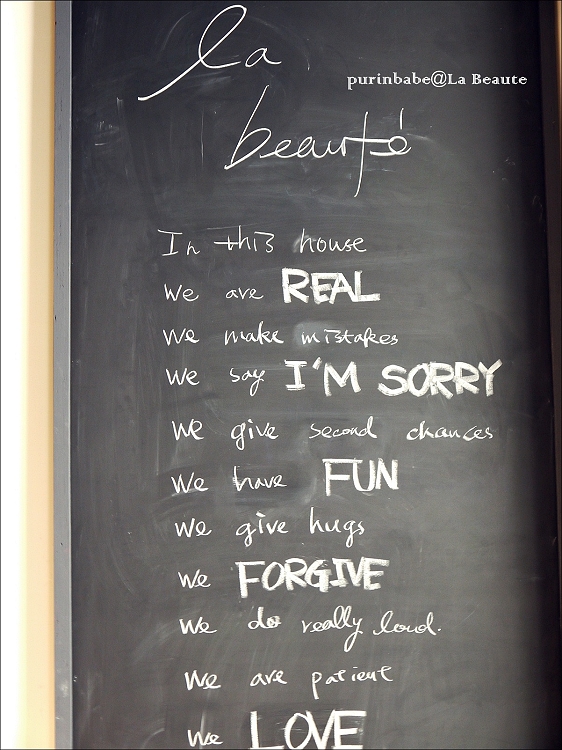 la
purinbabe@La Beaute
beauté
In this house
We are REAL
We make mistakes
We say I'M SORRY
We give second chances
We have FUN
We give hugs
We FORGIVE
We do really loud.
We are patient
We LOVE